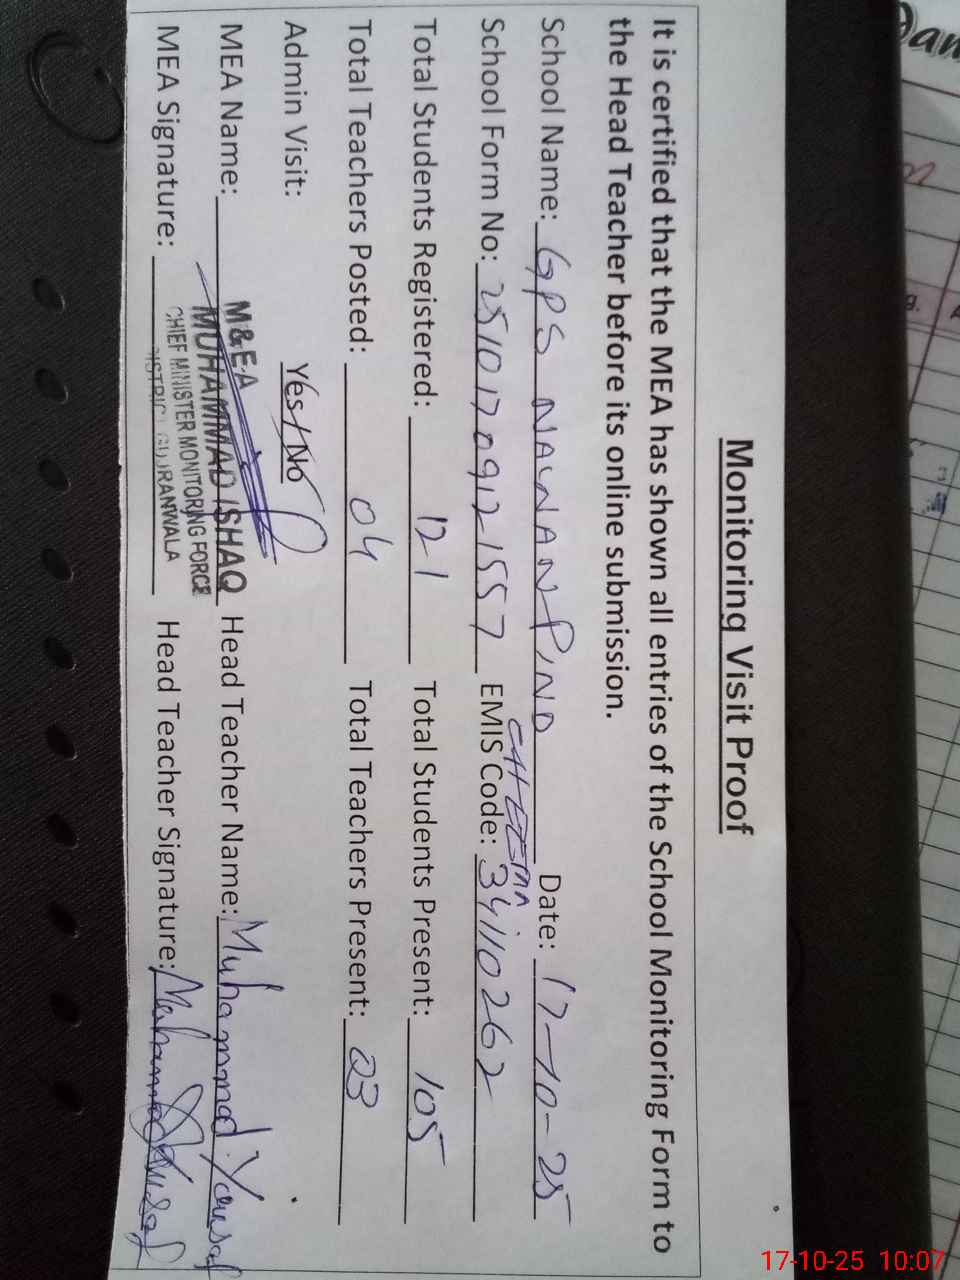 Monitoring Visit Proof
It is certified that the MEA has shown all entries of the School Monitoring Form to
the Head Teacher before its online submission.
School Name: GPS NAUNAN PIND CHEEMA Date: 17-10-25
School Form No: 25101709121557 EMIS Code: 34110262
Total Students Registered: 121 Total Students Present: 105
Total Teachers Posted: 04 Total Teachers Present: 03
Admin Visit: Yes/No
MEA Name: M&E.A MUHAMMAD ISHAQ Head Teacher Name: Muhammad Yousaf
CHIEF MINISTER MONITORING FORCE
DISTRICT GUJRANWALA
MEA Signature: Head Teacher Signature: Muhammad Yousaf
17-10-25 10:07